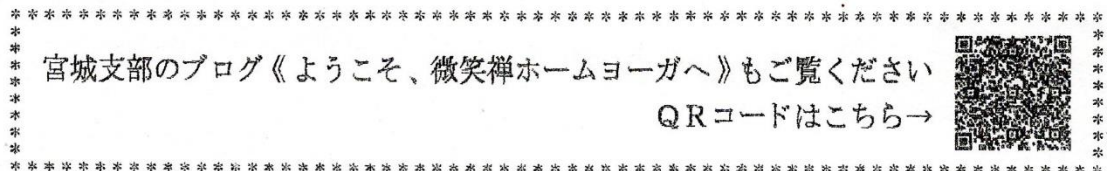 宮城支部のブログ《ようこそ、微笑禅ホームヨーガへ》もご覧ください
QRコードはこちら→